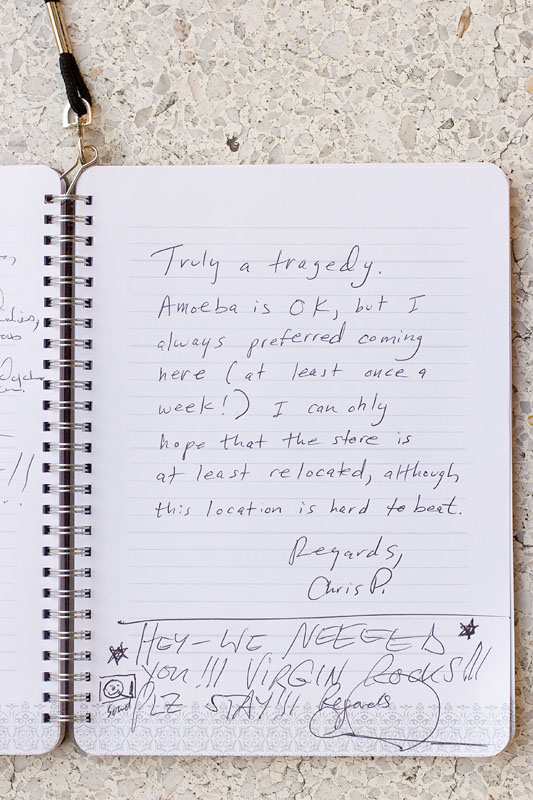 Truly a tragedy.
Amoeba is OK, but I
always preferred coming
here (at least once a
week!) I can only
hope that the store is
at least relocated, although
this location is hard to beat.
Regards,
Chris P.
HEY-WE NEEEED
YOU!!! VIRGIN ROCKS!!!
PLZ STAY!!! Regards